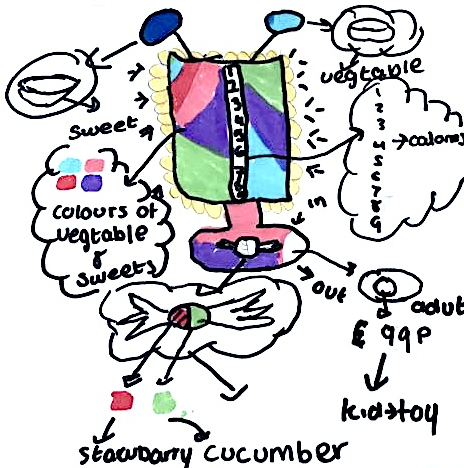 vegtable
sweet
1
2
3
4
5
6
7
8
9
→calories
colours of
vegtable
&
sweets
in
out
adut
£ 99p
kid→toy
stawbarry cucumber